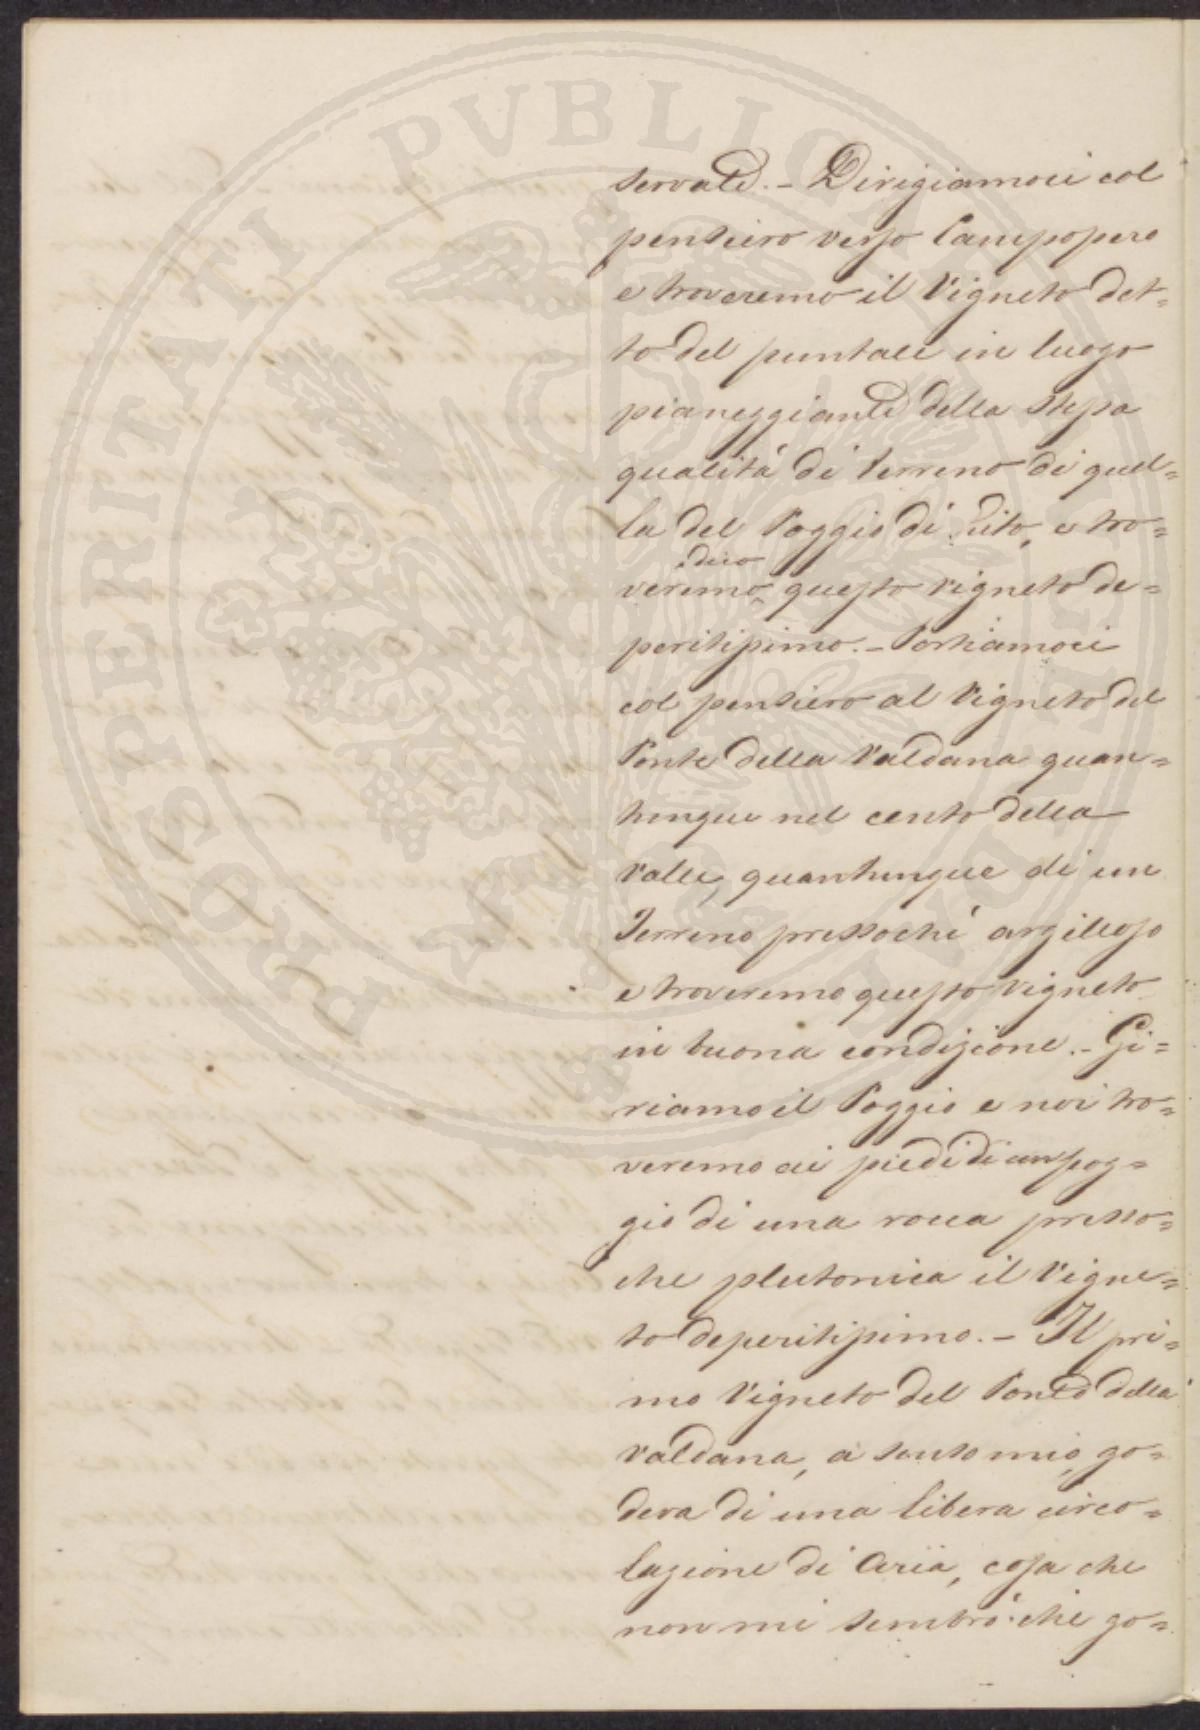 PROSPERITATI PVBLICAE AVGENDAE
servate. - Dirigiamoci col
pensiero verso Campopero
e troveremo il Vigneto det=
to del puntale in luogo
pianeggiante della stessa
qualità di terreno di quel=
la del Poggio di Vito, e tro=
dico
veremo questo vigneto de=
peritissimo. - Portiamoci
col pensiero al Vigneto del
Ponte della Valdana quan=
tunque nel cento della
Valle, quantunque di un
Terreno pressochè argilloso
e troveremo questo Vigneto
in buona condizione. - Gi=
riamo il Poggio e noi tro=
veremo ai piedi di un pog=
gio di una rocca presso=
che plutonica il Vigne=
to deperitissimo. - Il pri=
mo Vigneto del Ponte della
Valdana, a senso mio, go=
deva di una libera circo=
lazione di aria, cosa che
non mi sembrò che go=